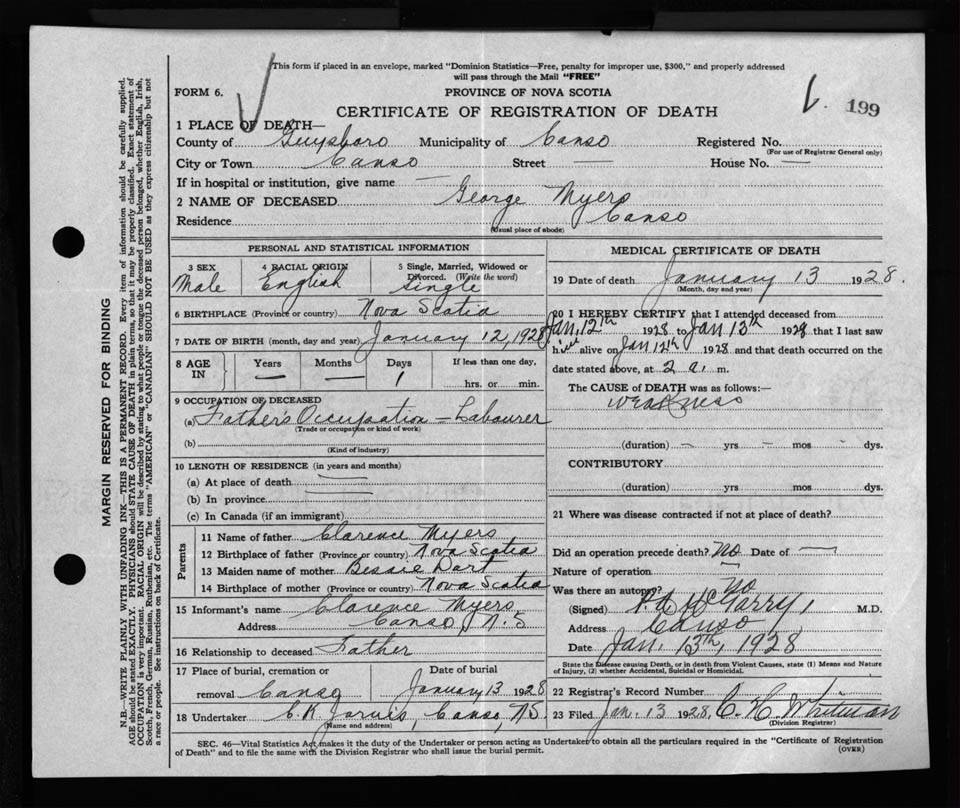 This form if placed in an envelope, marked "Dominion Statistics—Free, penalty for improper use, $300," and properly addressed
will pass through the Mail "FREE"
FORM 6.
PROVINCE OF NOVA SCOTIA
199
CERTIFICATE OF REGISTRATION OF DEATH
1 PLACE OF DEATH—
County of Guysboro Municipality of Canso Registered No.
(For use of Registrar General only)
City or Town Canso Street — House No. —
If in hospital or institution, give name —
2 NAME OF DECEASED George Myers
Residence Canso
(Usual place of abode)
PERSONAL AND STATISTICAL INFORMATION
3 SEX 4 RACIAL ORIGIN 5 Single, Married, Widowed or
Divorced. (Write the word)
Male English Single
6 BIRTHPLACE (Province or country) Nova Scotia
7 DATE OF BIRTH (month, day and year) January 12, 1928
8 AGE IN Years Months Days If less than one day,
— — 1 hrs. or min.
9 OCCUPATION OF DECEASED
(a) Father's Occupation – Labourer
(Trade or occupation or kind of work)
(b)
(Kind of industry)
10 LENGTH OF RESIDENCE (in years and months)
(a) At place of death —
(b) In province —
(c) In Canada (if an immigrant)
Parents
11 Name of father Clarence Myers
12 Birthplace of father (Province or country) Nova Scotia
13 Maiden name of mother Bessie Dort
14 Birthplace of mother (Province or country) Nova Scotia
15 Informant's name Clarence Myers
Address Canso, N.S
16 Relationship to deceased Father
17 Place of burial, cremation or Date of burial
removal Canso January 13 1928
18 Undertaker C. K. Jarvis, Canso, N.S.
(Name and address)
MEDICAL CERTIFICATE OF DEATH
19 Date of death January 13 1928.
(Month, day and year)
20 I HEREBY CERTIFY that I attended deceased from
Jan. 12th 1928 to Jan 13th 1928 that I last saw
him alive on Jan 12th 1928 and that death occurred on the
date stated above, at 2 a. m.
The CAUSE of DEATH was as follows:
weakness
(duration) – yrs – mos – dys.
CONTRIBUTORY
(duration) yrs mos dys.
21 Where was disease contracted if not at place of death?
Did an operation precede death? No Date of —
Nature of operation —
Was there an autopsy? No
(Signed) McGarry, M.D.
Address Canso
Date Jan. 13th, 1928
State the Disease causing Death, or in death from Violent Causes, state (1) Means and Nature
of Injury, (2) whether Accidental, Suicidal or Homicidal.
22 Registrar's Record Number
23 Filed Jan. 13 1928. C. H. Whitman
(Division Registrar)
SEC. 46—Vital Statistics Act makes it the duty of the Undertaker or person acting as Undertaker to obtain all the particulars required in the "Certificate of Registration
of Death" and to file the same with the Division Registrar who shall issue the burial permit.
(OVER)
MARGIN RESERVED FOR BINDING
N.B.—WRITE PLAINLY WITH UNFADING INK—THIS IS A PERMANENT RECORD. Every item of information should be carefully supplied.
AGE should be stated EXACTLY. PHYSICIANS should STATE CAUSE OF DEATH in plain terms, so that it may be properly classified. Exact statement of
OCCUPATION is very important. RACIAL ORIGIN will be described by stating to what people or tongue the deceased person belonged, whether English, Irish,
Scotch, French, German, Russian, Ruthenian, etc. The terms "AMERICAN" or "CANADIAN" SHOULD NOT BE USED as they express citizenship but not
a race or people. See instructions on back of Certificate.